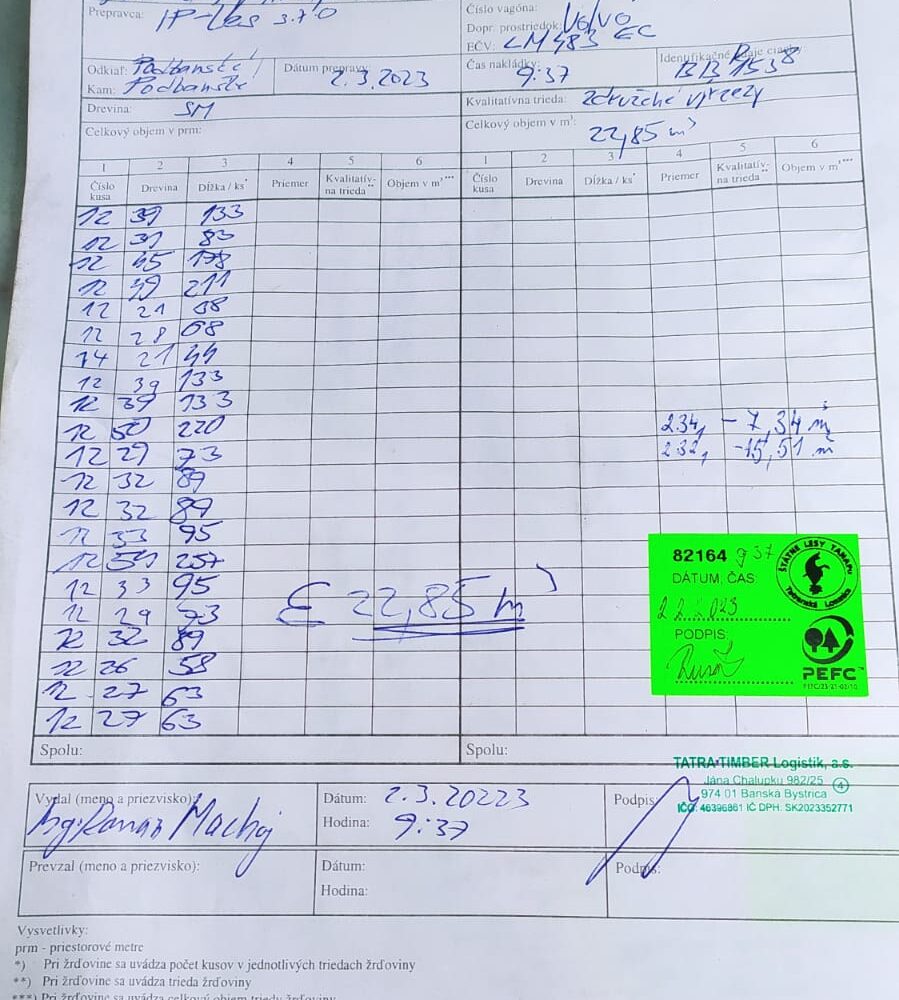 Prepravca: IP-Les s.r.o
Číslo vagóna:
Dopr. prostriedok: Volvo
EČV: LM483 EC
Odkiaľ: Podbanské
Kam: Podbanské
Dátum prepravy: 2.3.2023
Čas nakládky: 9:37
Identifikačné údaje ciachy
Drevina: SM
Kvalitatívna trieda: Združené výrezy
Celkový objem v prm:
Celkový objem v m³: 22,85 m³
1 2 3 4 5 6 1 2 3 4 5 6
Číslo kusa Drevina Dĺžka / ks* Priemer Kvalitatív- na trieda** Objem v m³*** Číslo kusa Drevina Dĺžka / ks* Priemer Kvalitatív- na trieda** Objem v m³***
12 39 133
12 31 83
12 45 178
12 49 211
12 21
12 28 68
14 21 44
12 39 133
12 39 133
12 50 220 234, - 7,34 m³
12 29 73 232, -15,51 m³
12 32 89
12 32 89
12 33 95
12 54 257
12 33 95
12 29 73
12 32 89
12 26 58
12 27 63
12 27 63
22,85 m³
82164 937
DÁTUM, ČAS
2.2.2023
PODPIS
ŠTÁTNE LESY TANAPU
Tatranská Lomnica
PEFC™
Spolu: Spolu:
TATRA TIMBER Logistik, a.s.
Jána Chalupku 982/25
974 01 Banská Bystrica 4
IČO: 46396861 IČ DPH: SK2023352771
Vydal (meno a priezvisko): Machaj
Dátum: 2.3.20223
Hodina: 9:37
Podpis:
Prevzal (meno a priezvisko):
Dátum:
Hodina:
Podpis:
Vysvetlivky:
prm - priestorové metre
*) Pri žrďovine sa uvádza počet kusov v jednotlivých triedach žrďoviny
**) Pri žrďovine sa uvádza trieda žrďoviny
***) Pri žrďovine sa uvádza celkový objem triedy žrďoviny